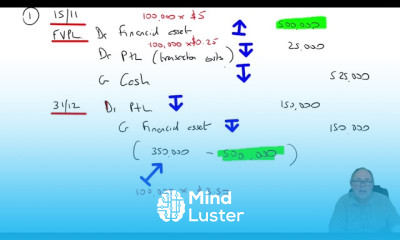 ① 15/11 100,000 x $5
FVPL Dr Financial asset 500,000
100,000 x $0.25
Dr P+L (transaction costs) 25,000
Cr Cash 525,000
31/12 Dr P+L 150,000
Cr Financial asset 150,000
( 350,000 - 500,000 )
100,000 x $3.50
Mind
Luster